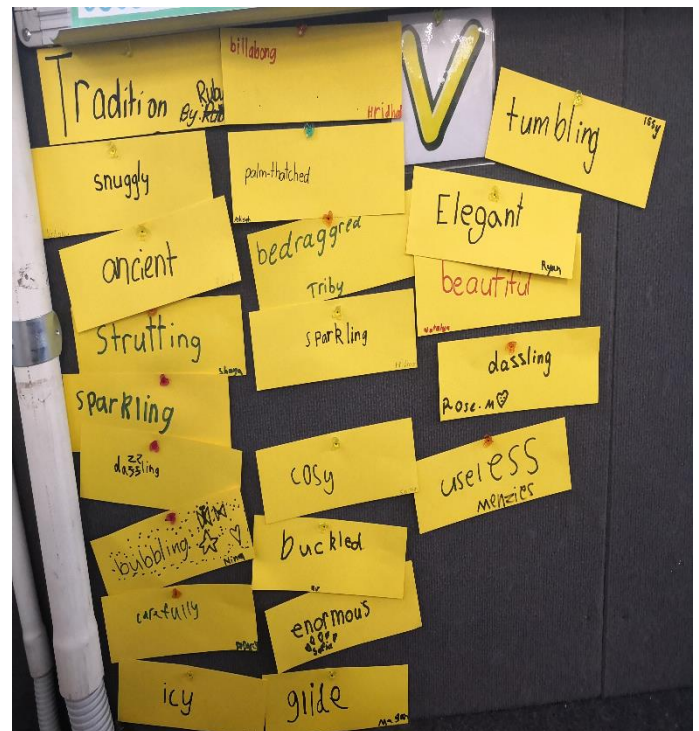 Tradition
Ruby
By.
billabong
Hridha
V
tumbling
issy
snuggly
palm-thatched
Elegant
Ryan
ancient
bedraggred
Triby
beautiful
Strutting
sparkling
dassling
Rose.M
sparkling
dassling
zz
cosy
useless
Menzies
bubbling
Nina
buckled
carefully
enormous
Sofia
icy
glide